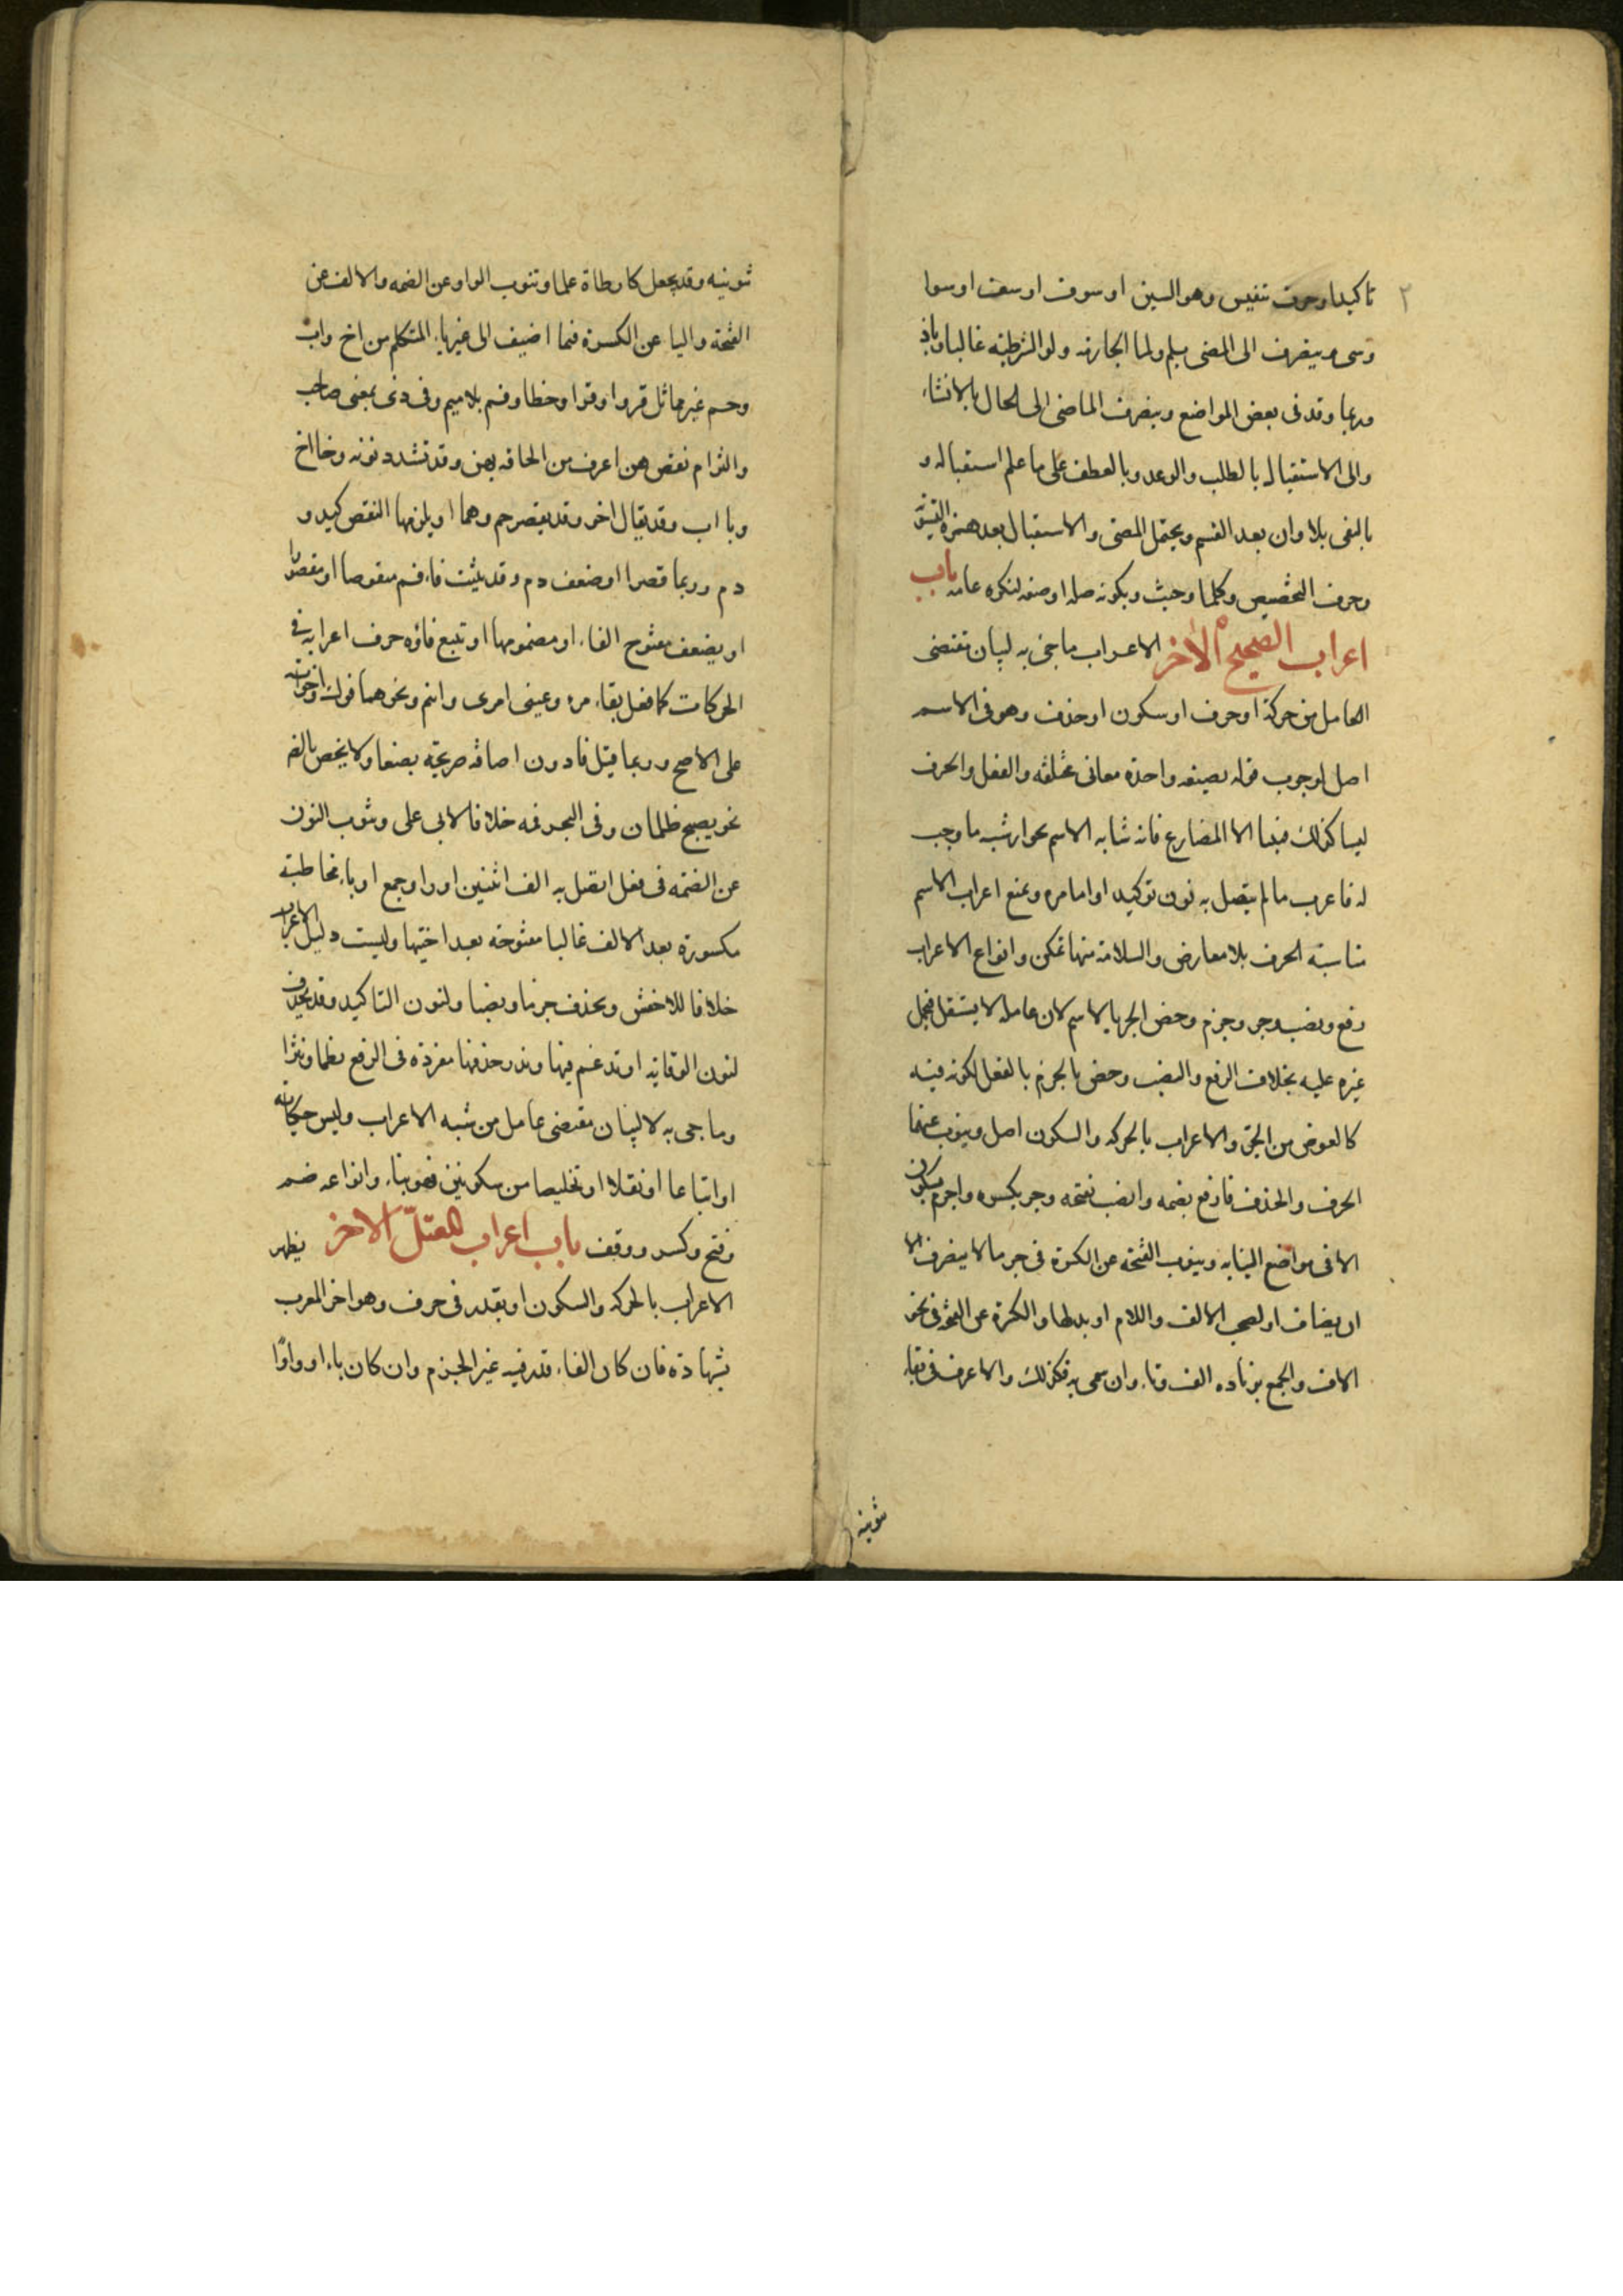 ٢
تاكيدا وحرف تنفيس وهو السين او سوف او سف او سوا
وسى وينصرف الى المضى بلم ولما الجازمه ولو الشرطيه غالبا وباذ
وربما وقد فى بعض المواضع وينصرف الماضى الى الحال بالانشاء
والى الاستقبال بالطلب والوعد وبالعطف على ما علم استقباله و
بالنفى بلا وان بعد القسم ويحتمل المضى والاستقبال بعد همزه التسويه
وحرف التحضيض وكلما وحيث وبكونه صله او صفه لنكره عامه باب
اعراب الصحيح الآخر الاعراب ما جئ به لبيان مقتضى
العامل من حركة او حرف او سكون او حذف وهو فى الاسم
اصل لوجوب قبوله بصيغه واحدة معانى مختلفه والفعل والحرف
ليسا كذلك فبنيا الا المضارع فانه شابه الاسم بجواز شبه ما وجب
له فاعرب ما لم يتصل به نون توكيد او اناث ويمنع اعراب الاسم
مشابهة الحرف بلا معارض والسلامة منها تمكن وانواع الاعراب
رفع ونصب وجر وجزم وخص الجر بالاسم لان عامله لا يستقل فيحمل
غيره عليه بخلاف الرفع والنصب وخص الجزم بالفعل لكونه فيه
كالعوض من الجر والاعراب بالحركه والسكون اصل وينوب عنهما
الحرف والحذف فارفع بضمه وانصب بفتحه وجر بكسره واجزم بسكون
الا فى مواضع النيابه وينوب الفتحة عن الكسرة فى جر ما لا ينصرف الا
ان يضاف او يصحب الالف واللام او بدلها والكسرة عن الفتحة فى نحو
الات والجمع بزياده الف وتاء وان سمى به فكذلك والاعرف فى بقاء
تنوينه
تنوينه وقد يجعل كارطاة علما وتنوب الواو عن الضمه والالف عن
الفتحة واليا عن الكسرة فيما اضيف الى غير ياء المتكلم من اخ واب
وحم غير مماثل قروا وقروا وخطا وفم بلا ميم وفى ذى بمعنى صاحب
والتزام نقص هن اعرف من الحاقه بهن وقد تشدد نونه وخا اخ
وبا اب وقد يقال اخو وقد يقصر حم وهما او يلزمها النقص كيد و
دم وربما قصرا او ضعف دم وقد يثلث فاء فم منقوصا او مقصورا
او يضعف مفتوح الفاء او مضمومها او تتبع فاؤه حرف اعرابه فى
الحركات كما فعل بفاء مرء وعينى امرى وابنم ونحوهما فوك واخواته
على الاصح وربما قيل فا دون اضافه صريحة نصبا ولا يخص بالضم
نحو يصبح ظمان وفى البحر فمه خلافا لابى على وتنوب النون
عن الضمه فى فعل اتصل به الف اثنين او واو جمع او ياء مخاطبة
مكسورة بعد الالف غالبا مفتوحة بعد اختيها وليست دليل الاعراب
خلافا للاخفش وتحذف جزما ونصبا ولنون التاكيد وقد تحذف
لنون الوقايه او تدغم فيها وندر حذفها مفردة فى الرفع نظما ونثرا
وما جئ به لا لبيان مقتضى عامل من شبه الاعراب وليس حكاية
او اتباعا او نقلا او تخليصا من سكونين فهو بناء وانواعه ضم
وفتح وكسر ووقف باب اعراب المعتلّ الآخر يظهر
الاعراب بالحركه والسكون او يقدر فى حرف وهو اخر المعرب
بشهادة فان كان الفاء قدر فيه غير الجزم وان كان ياء او واوًا